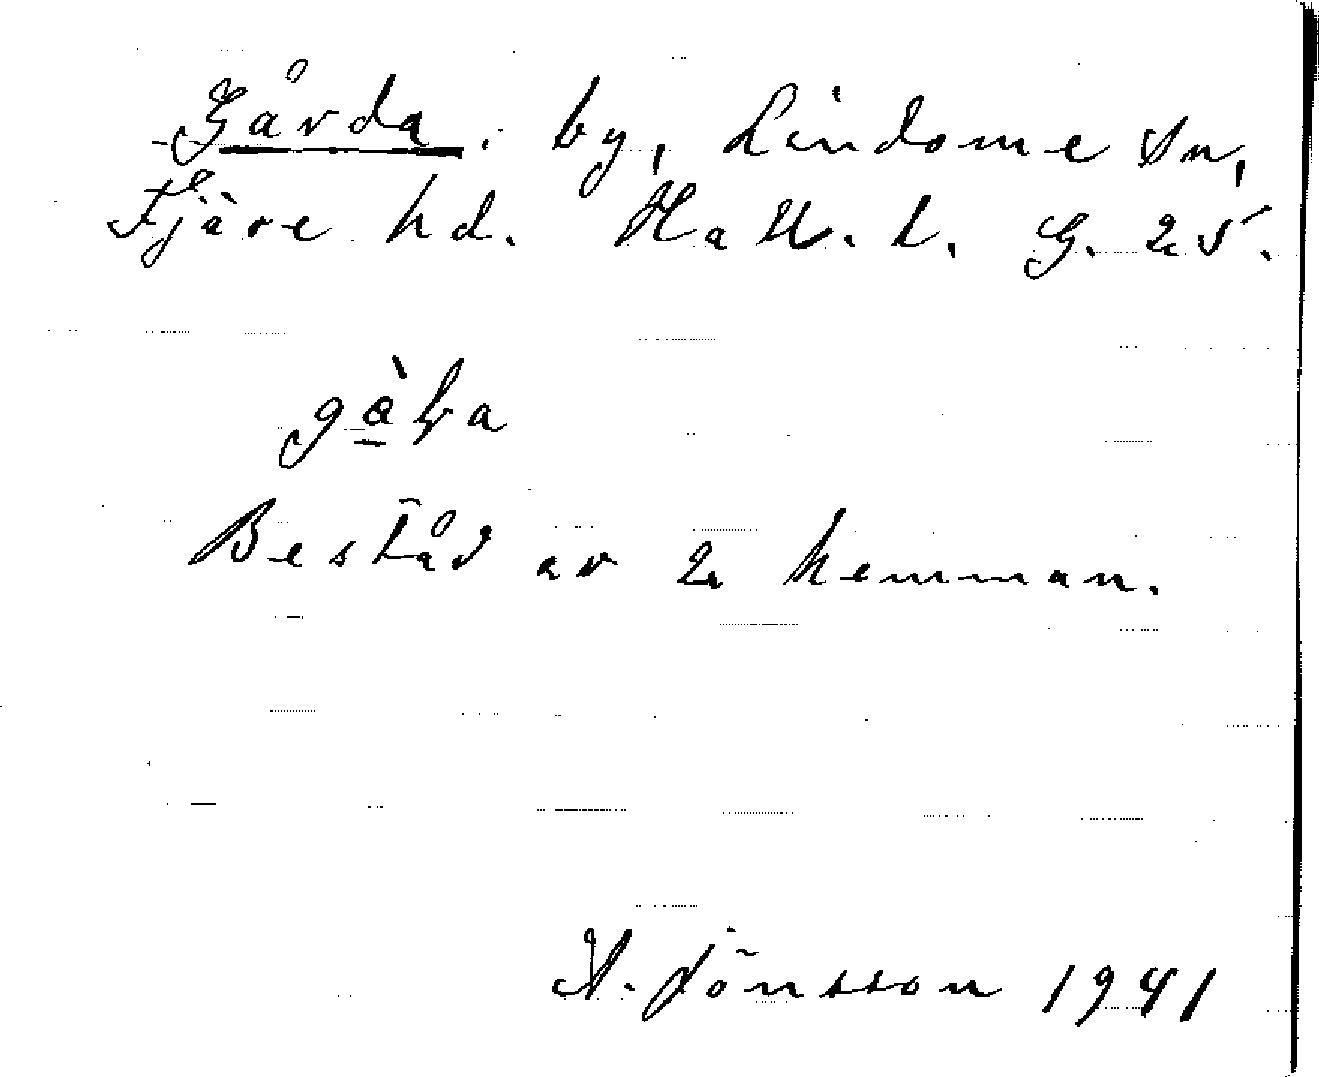 Gårda, by, Lindome sn,
Fjäre hd. Hall. l. G. 25.
Består av 2 hemman.
A. Jönsson 1941